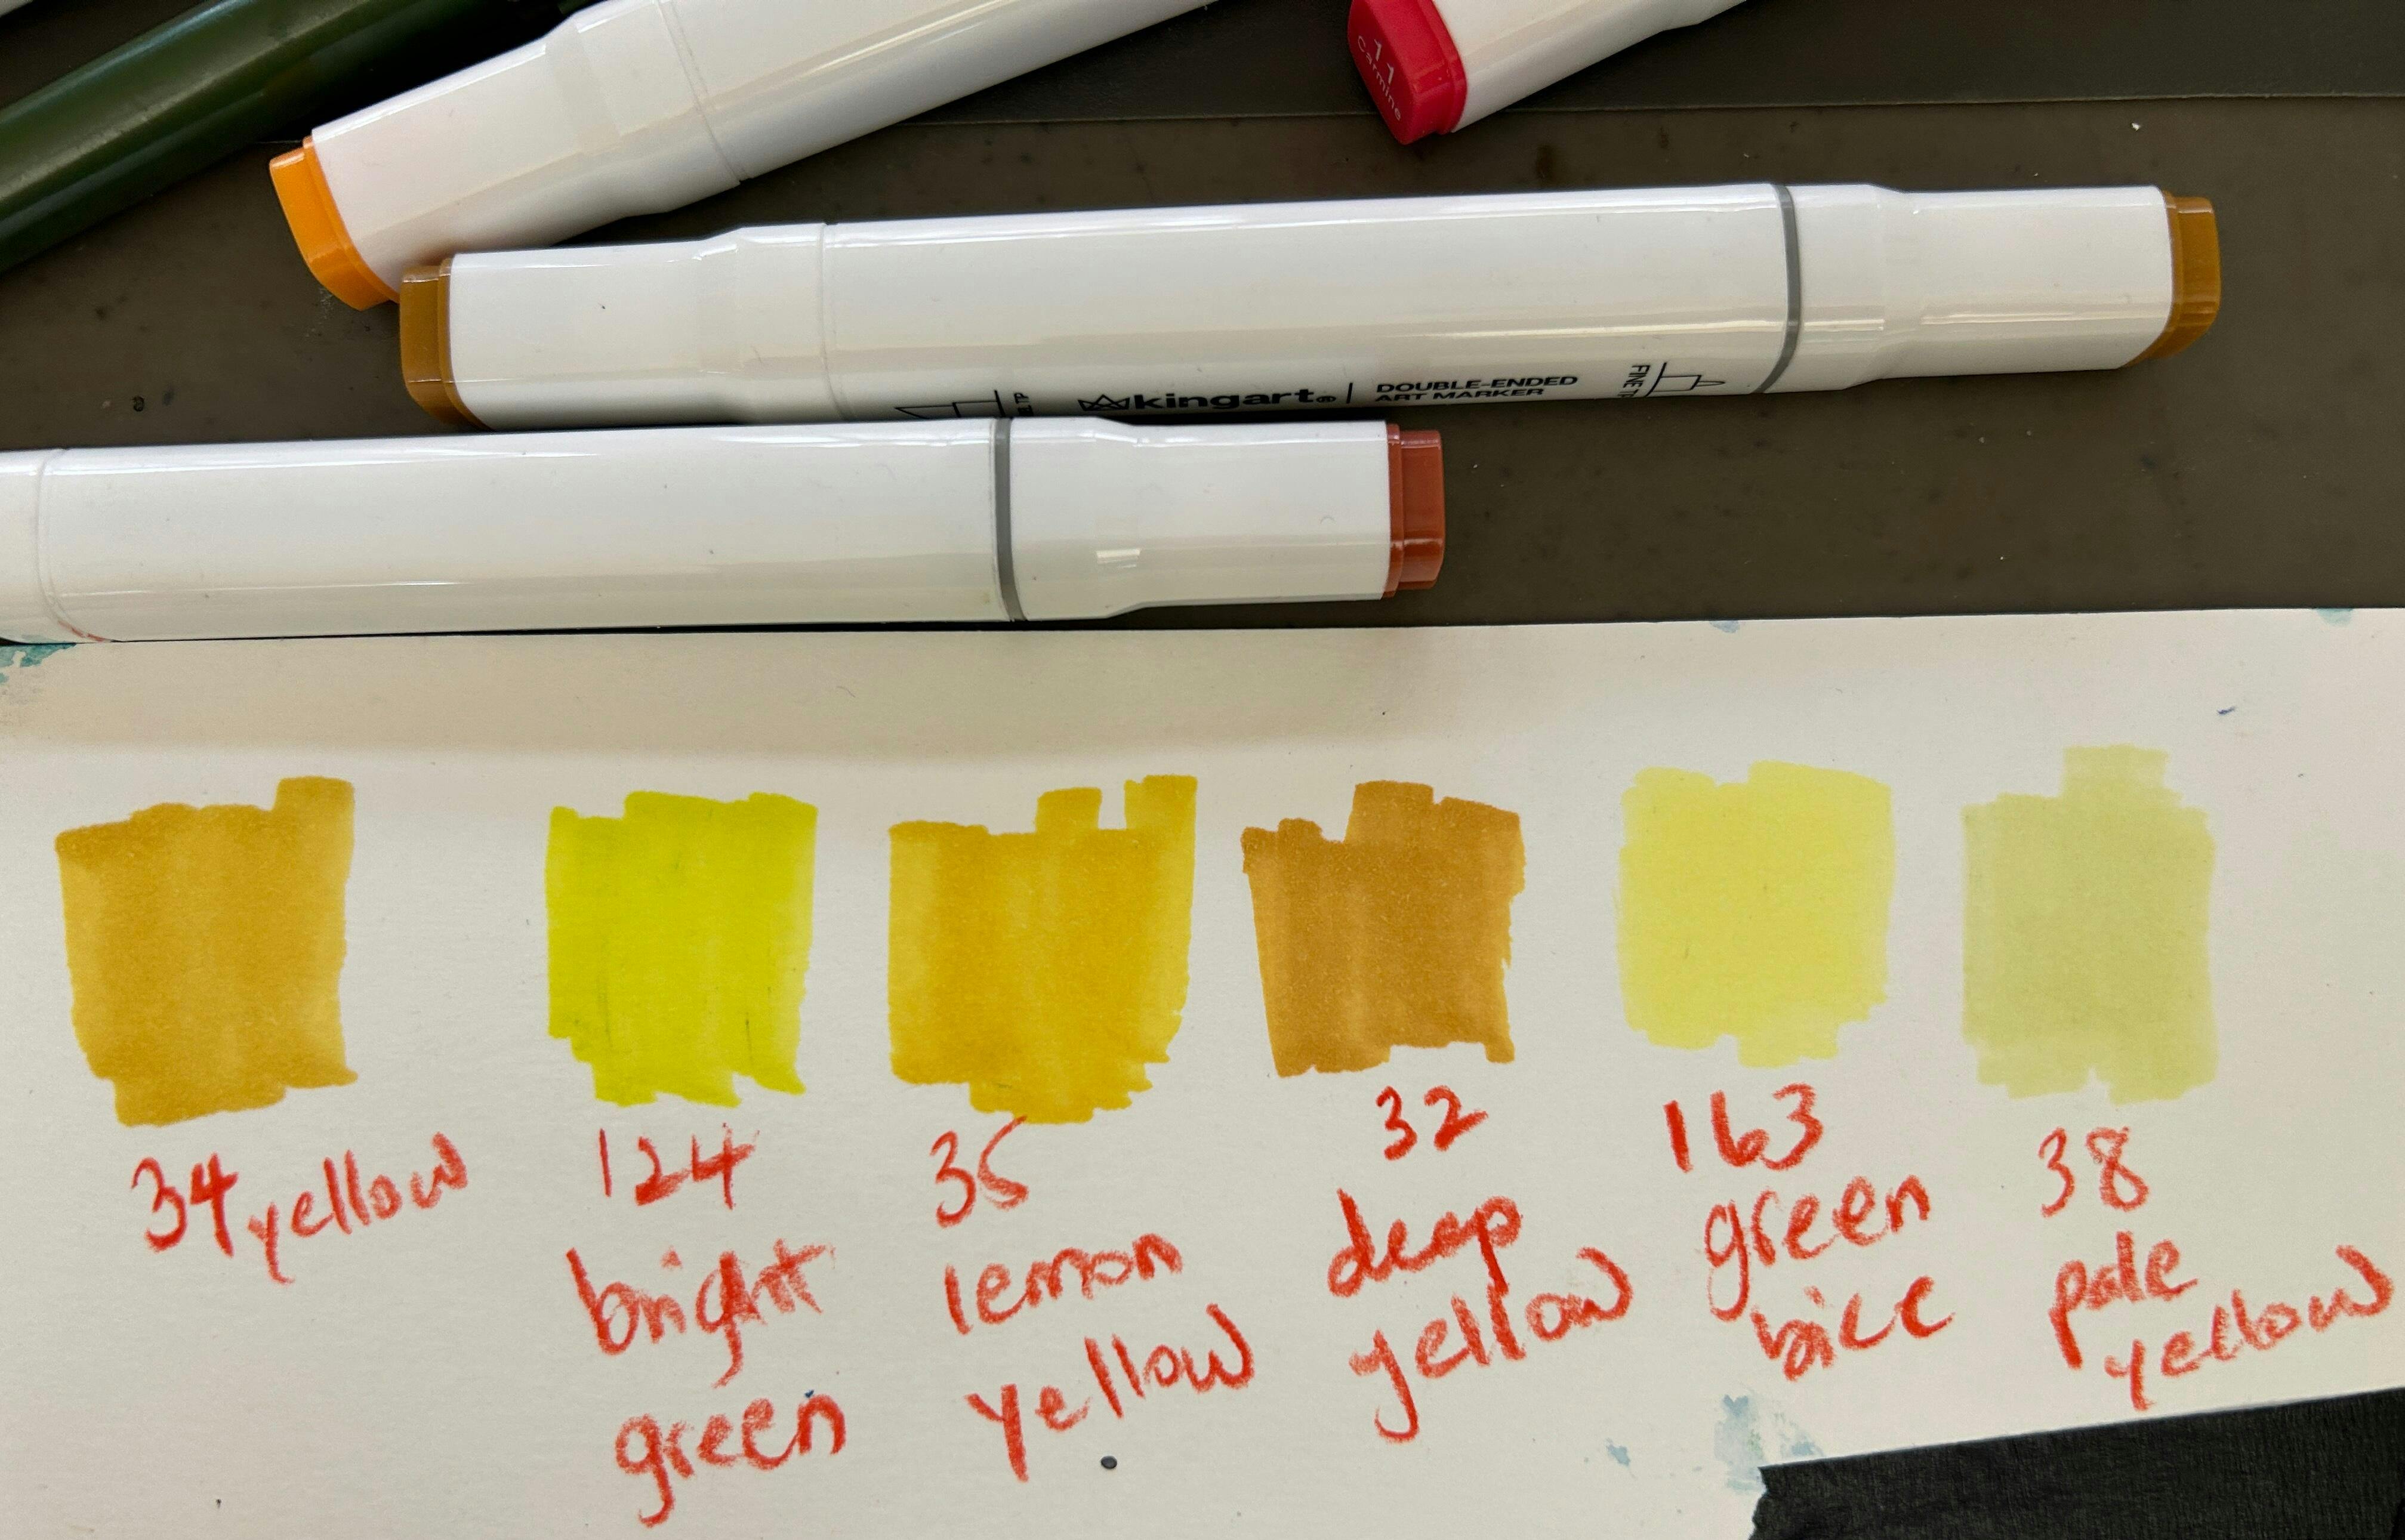 11
Carmine
kingart® DOUBLE-ENDED
ART MARKER
FINE
34 yellow
124
bright
green
35
lemon
yellow
32
deep
yellow
163
green
bice
38
pale
yellow